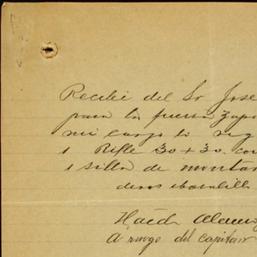 Recibi del Sr Jose
para la fuerza Zapa
mi cargo lo sig
1 Rifle 30+30. con
1 silla de montar
deros
Hacda
A ruego del capitan